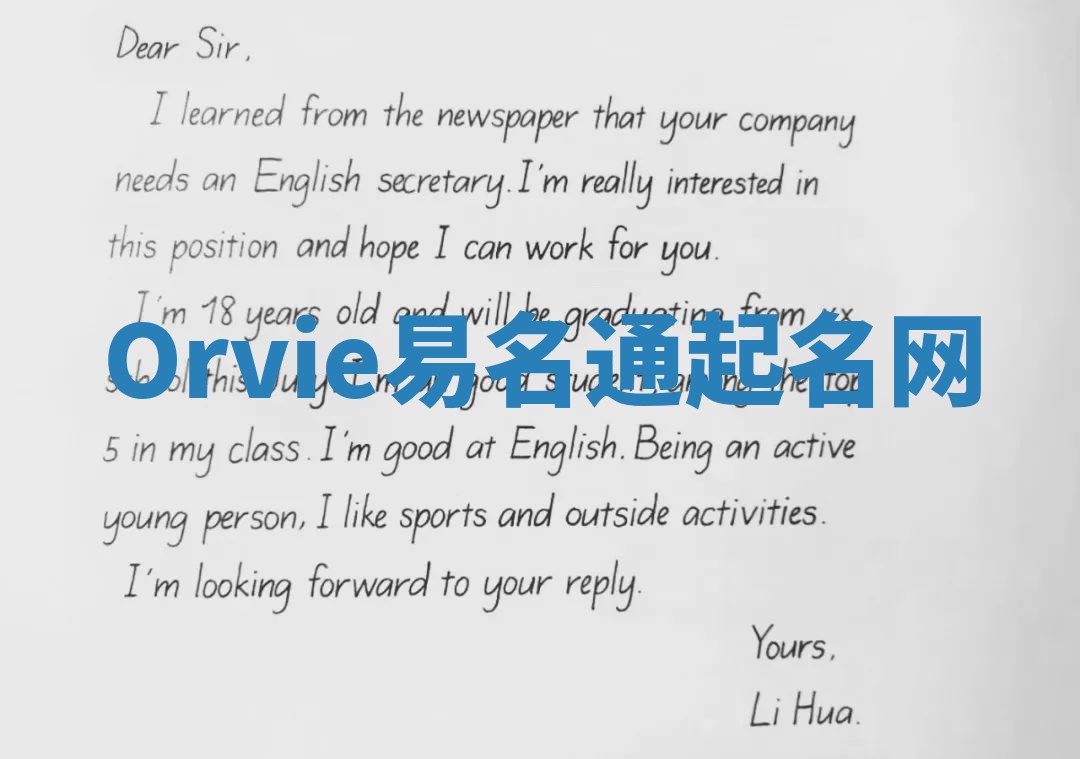 Dear Sir,
I learned from the newspaper that your company
needs an English secretary. I'm really interested in
this position and hope I can work for you.
I'm 18 years old and will be graduating from xx
Orvie易名通起名网
school this July. I'm a good student, among the top
5 in my class. I'm good at English. Being an active
young person, I like sports and outside activities.
I'm looking forward to your reply.
Yours,
Li Hua.